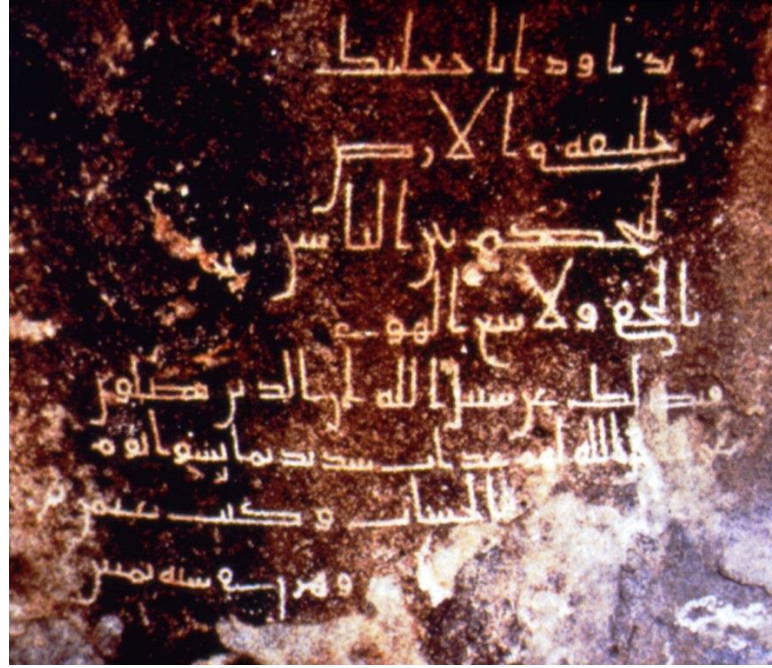 يداود انا جعلنك
خليفه في الارض
فاحكم بين الناس
بالحق ولا تتبع الهوى
فيضلك عن سبيل الله ان الذين يضلون
عن سبيل الله لهم عذاب شديد بما نسوا يوم
الحساب وكتب عثمن
وهرن سنه ثمنين